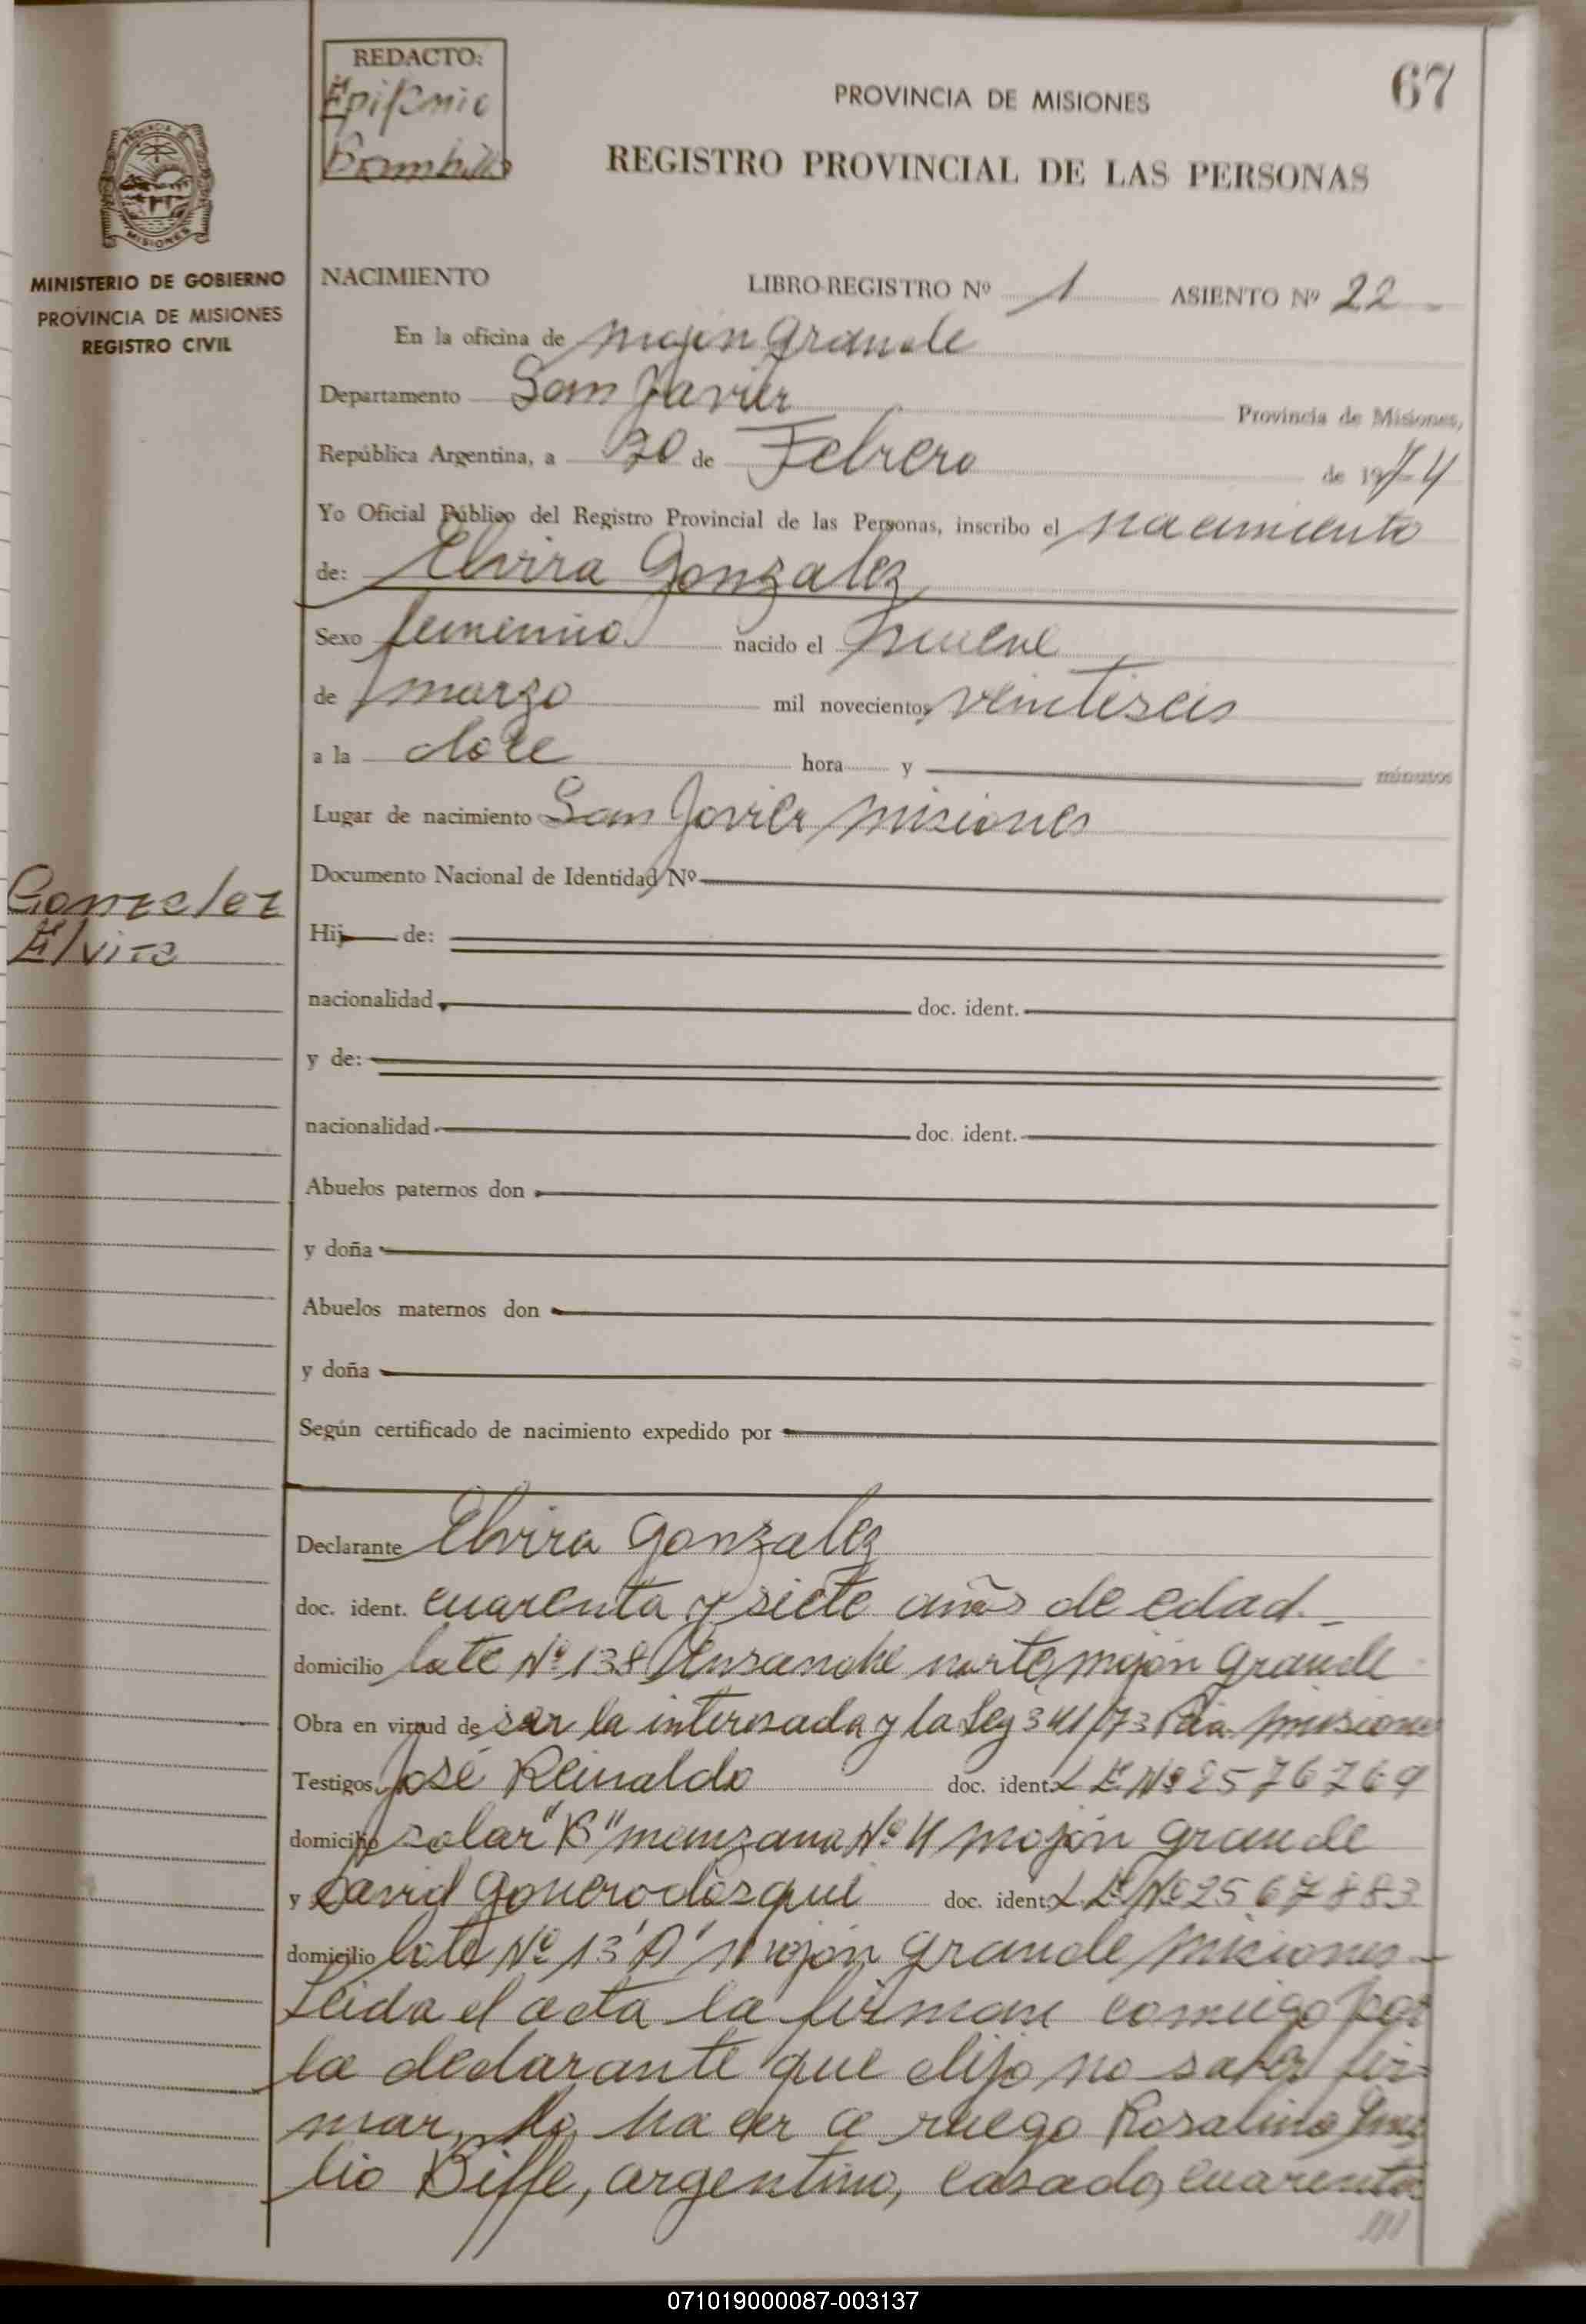 REDACTO:
Epifanio
PROVINCIA DE MISIONES
67
REGISTRO PROVINCIAL DE LAS PERSONAS
PROVINCIA DE
MISIONES
MINISTERIO DE GOBIERNO
PROVINCIA DE MISIONES
REGISTRO CIVIL
NACIMIENTO LIBRO-REGISTRO Nº 1 ASIENTO Nº 22
En la oficina de mojón grande
Departamento San Javier Provincia de Misiones,
República Argentina, a 20 de Febrero de 1974
Yo Oficial Público del Registro Provincial de las Personas, inscribo el nacimiento
de: Elvira Gonzalez
Sexo femenino nacido el nueve
de marzo mil novecientos veintiseis
a la doce hora y minutos
Lugar de nacimiento San Javier misiones
Documento Nacional de Identidad Nº
Gonzalez
Elvira
Hij de:
nacionalidad doc. ident.
y de:
nacionalidad doc. ident.
Abuelos paternos don
y doña
Abuelos maternos don
y doña
Según certificado de nacimiento expedido por
Declarante Elvira Gonzalez
doc. ident. cuarenta y siete años de edad.
domicilio lote Nº 138 Ensanche norte mojón grande
Obra en virtud de ser la interesada y la Ley 341/73 Pcia. misiones
Testigos José Reinaldo doc. ident. L E Nº 2576769
domicilio solar "B" manzana Nº 4 mojón grande
y David doc. ident. L E Nº 2567883
domicilio lote Nº 13 "A" mojón grande misiones
Leida el acta la firman conmigo por
la declarante que dijo no saber fir=
mar, lo hacer a ruego Rosalino
lio Biffe, argentino, casado, cuarenta
///
071019000087-003137